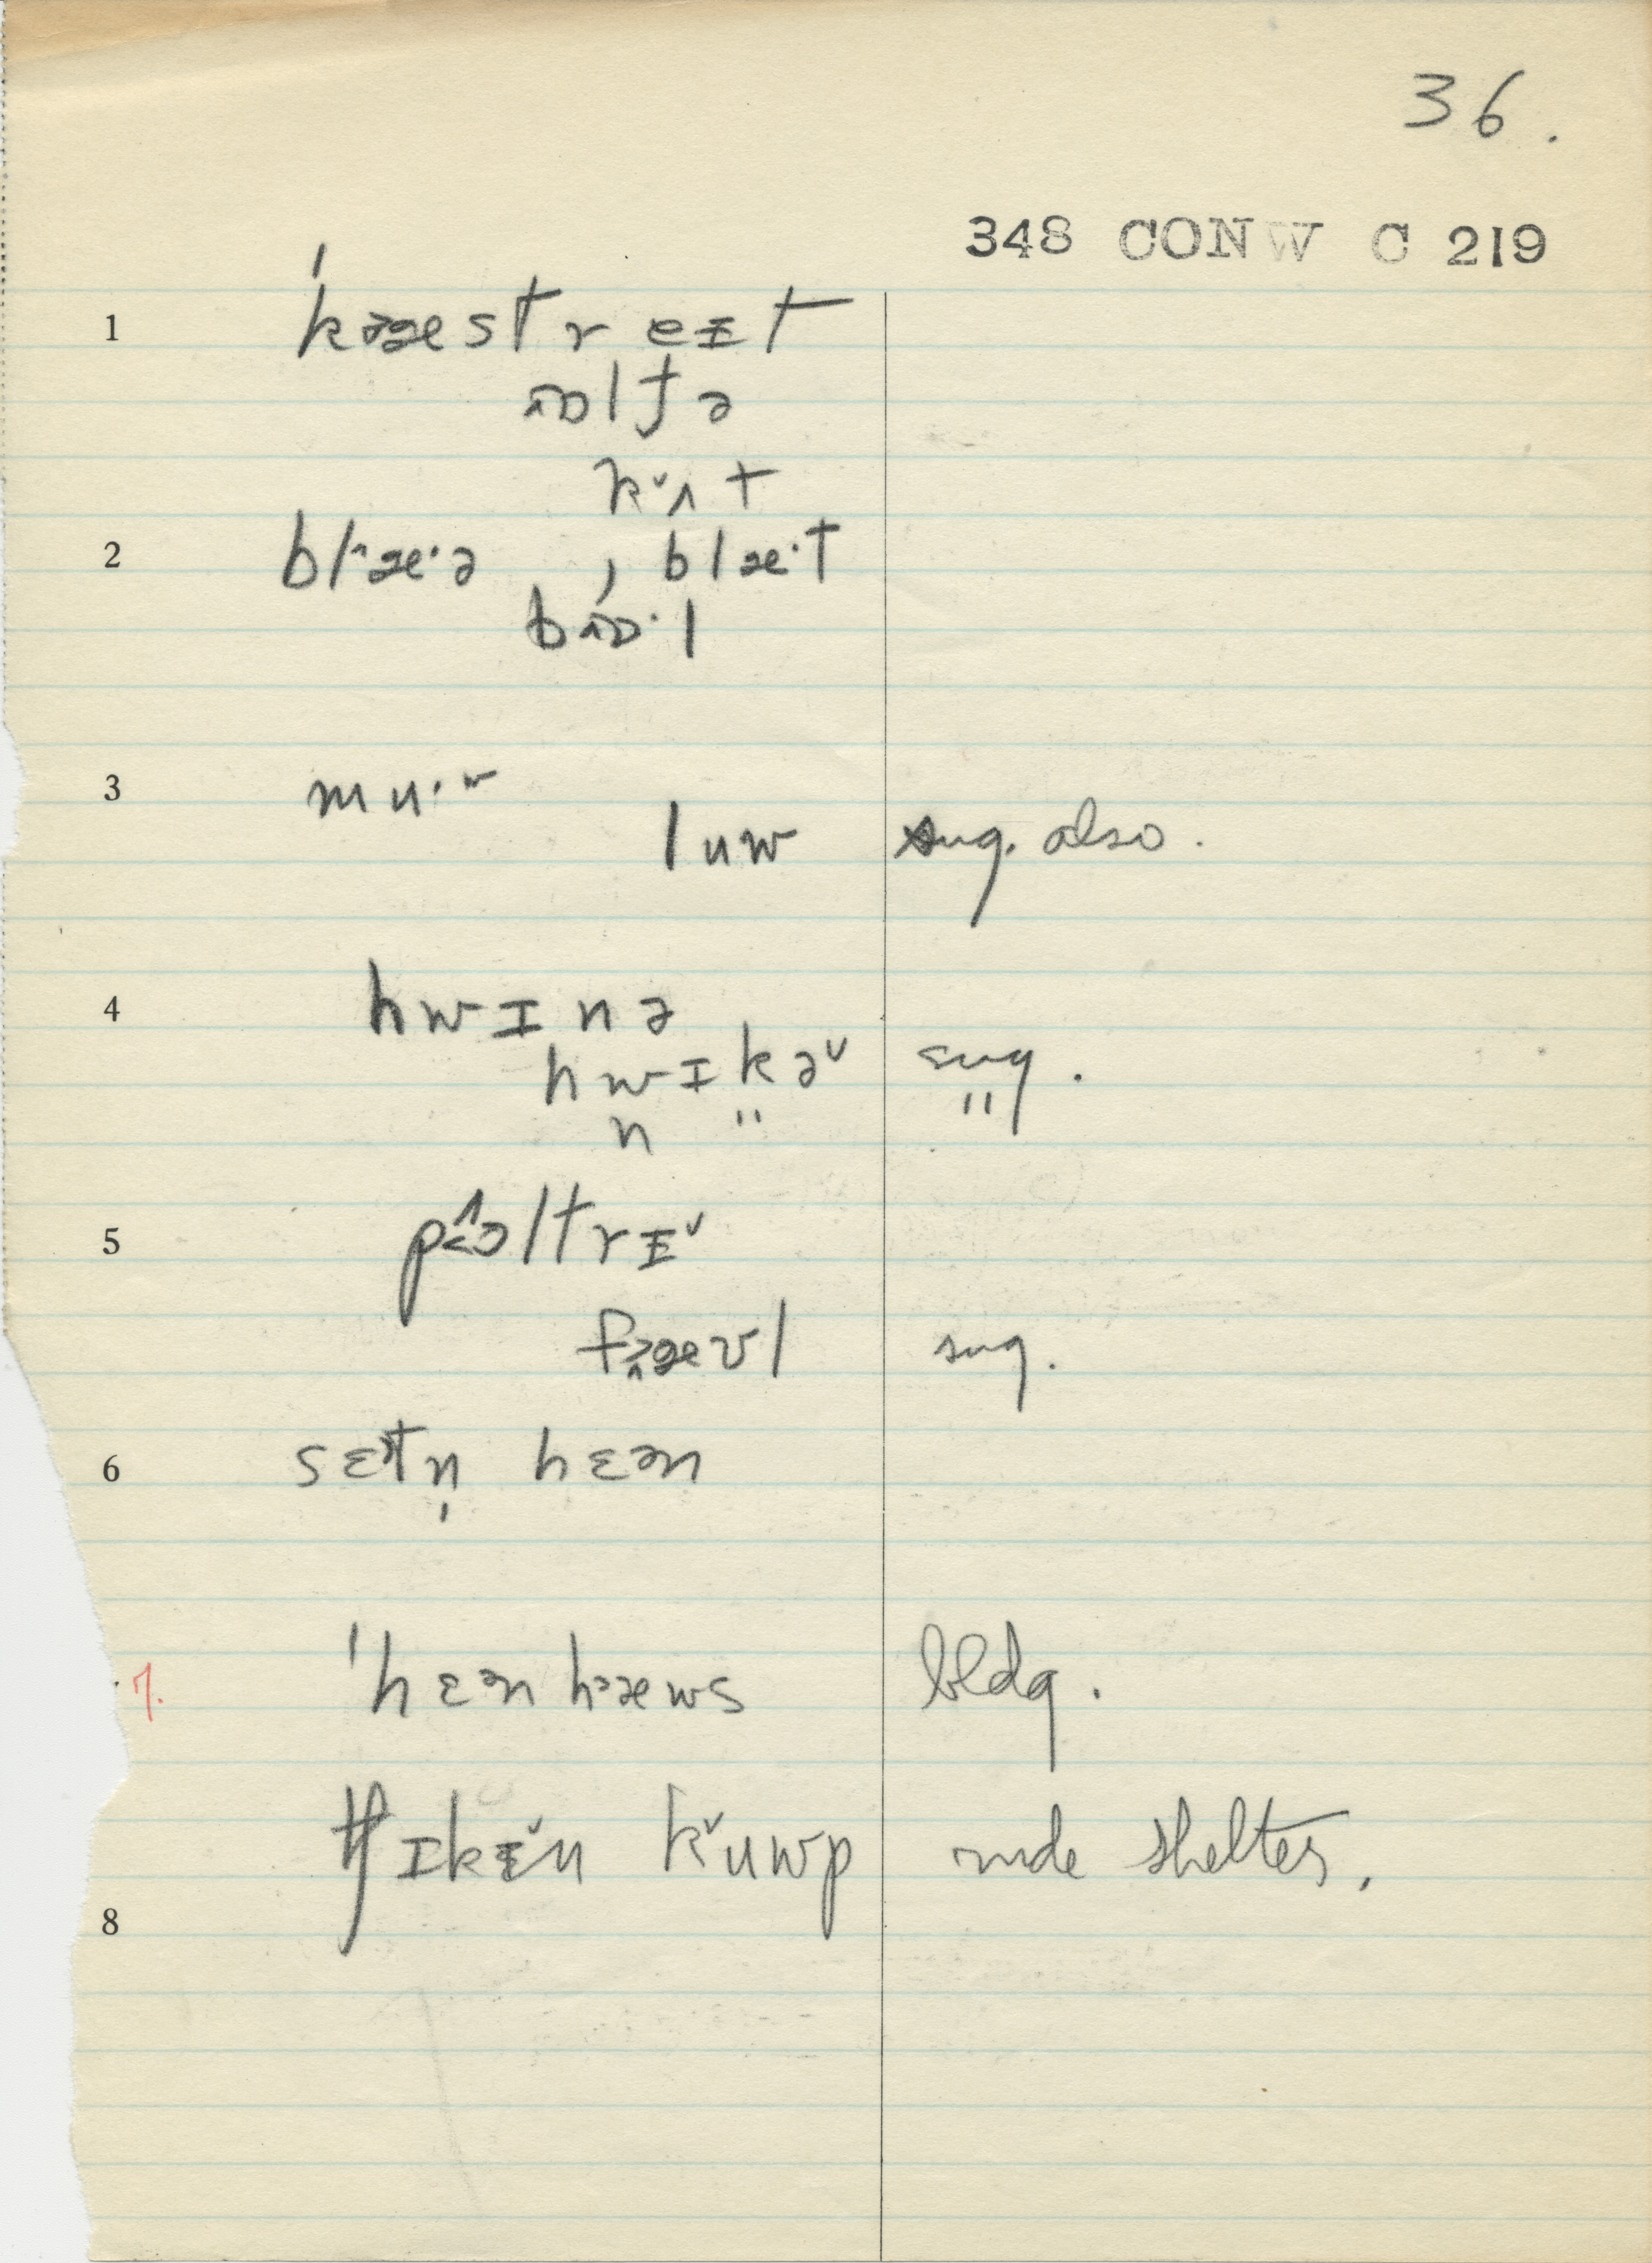 36.
348 CONW C 219
1 ˈkəæstreɪt
ɒltə
kˇʌt
2 bl^æ·ə , blæ·t
bɒ·l
3 mu·w
luw sug. also.
4 hwɪnə
hwɪkəˇ sug.
n " "
5 pɔltrɪˇ
fæəvl sug.
6 sɛətn̩ hɛən
7. ˈhɛənhəæws bldg.
tʃɪkɪˇn kˇuwp rude shelter.
8